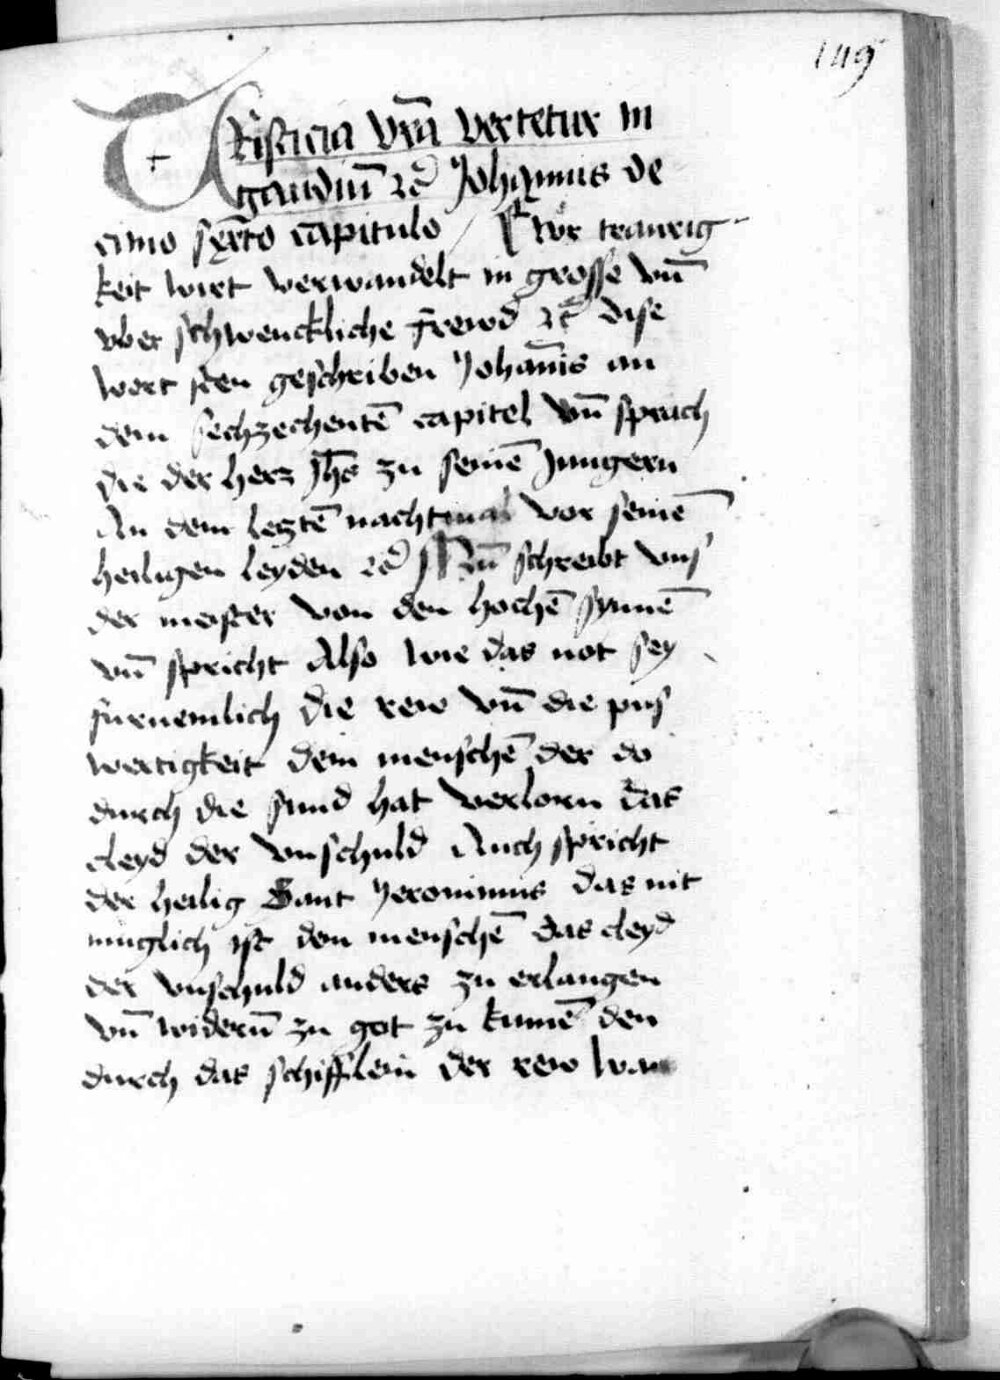 149
Tristicia vr̄a vertetur in
gaudiū ⁊c̄ Johannis de
cimo sexto capitulo / Ewr traurig-
keit wirt verwandelt in grosse vn̄
vber schwenckliche frewd ⁊c̄ dise
wort sten geschriben Johan̄is an
dem sechzechentē capitel vn̄ sprach
die der herr Jhs̄ zu seinē Jungern
An dem letztē nachtmal vor seinē
heiligen leyden ⁊c̄ Nū schreibt vns
der meister von den hochē synnē
vn̄ spricht Also wie das not sey
furnemlich die rew vn̄ die pus
wertigkeit dem menschē der do
durch die sund hat verlorn das
cleyd der vnschuld Auch spricht
der heilig Sant Jeronimus das nit
muglich ist den menschē das cleyd
der vnschuld anders zu erlangen
vn̄ widerū zu got zu kumē den
durch das schifflein der rew wan